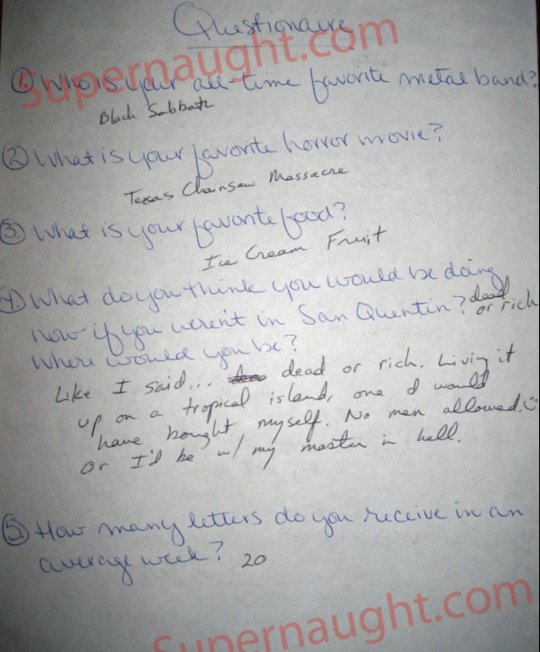 Questionaire
Supernaught.com
1. Who is your all-time favorite metal band?
Black Sabbath
2 What is your favorite horror movie?
Texas Chainsaw Massacre
3. What is your favorite food?
Ice Cream Fruit
4 What do you think you would be doing
now if you weren't in San Quentin? dead or rich
Where would you be?
Like I said... dead or rich. Living it
up on a tropical island, one I would
have bought myself. No men allowed.
Or I'd be w/ my master in hell.
5. How many letters do you receive in an
average week? 20
Supernaught.com